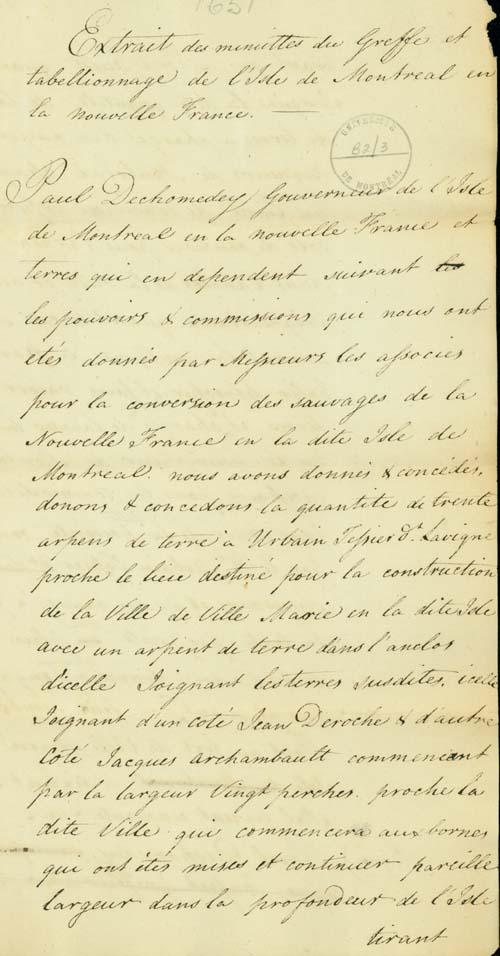 1651
Extrait des minuttes du Greffe et
tabellionnage de l'Isle de Montreal en
la nouvelle France. —
UNIVERSITÉ
B2/3
DE MONTREAL
Paul Dechomedey Gouverneur de l'Isle
de Montreal en la nouvelle France et
terres qui en dependent suivant
les pouvoirs & commissions qui nous ont
etés donnés par Messieurs les associes
pour la conversion des sauvages de la
Nouvelle France en la dite Isle de
Montreal. nous avons donnés & concédés,
donons & concedons la quantité de trente
arpens de terre a Urbain Tessier dt. Lavigne
proche le lieu destiné pour la construction
de la Ville de Ville Marie en la dite Isle
avec un arpent de terre dans l'anclos
d'icelle Joignant les terres susdites, icelle
Joignant d'un coté Jean Deroche & d'autre
coté Jacques archambault commencant
par la largeur Vingt perches. proche la
dite Ville qui commencera aux bornes
qui ont étés mises et continuer pareille
largeur dans la profondeur de l'Isle
tirant